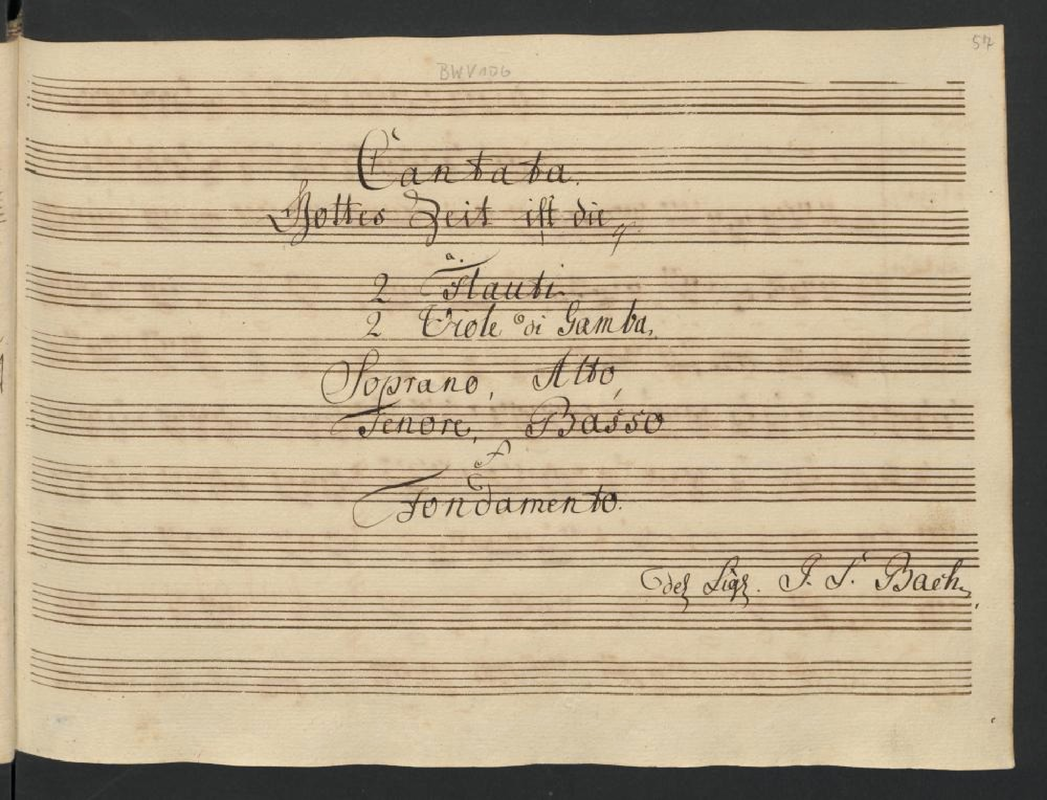 57
BWV 106
Cantata.
Gottes Zeit ist die
a.
2 Flauti
2 Viole di Gamba,
Soprano, Alto,
Tenore, Basso
e
Fondamento.
del Sigr. J. S. Bach